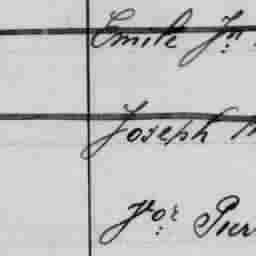 Emile Jn
Joseph
Jror Pier